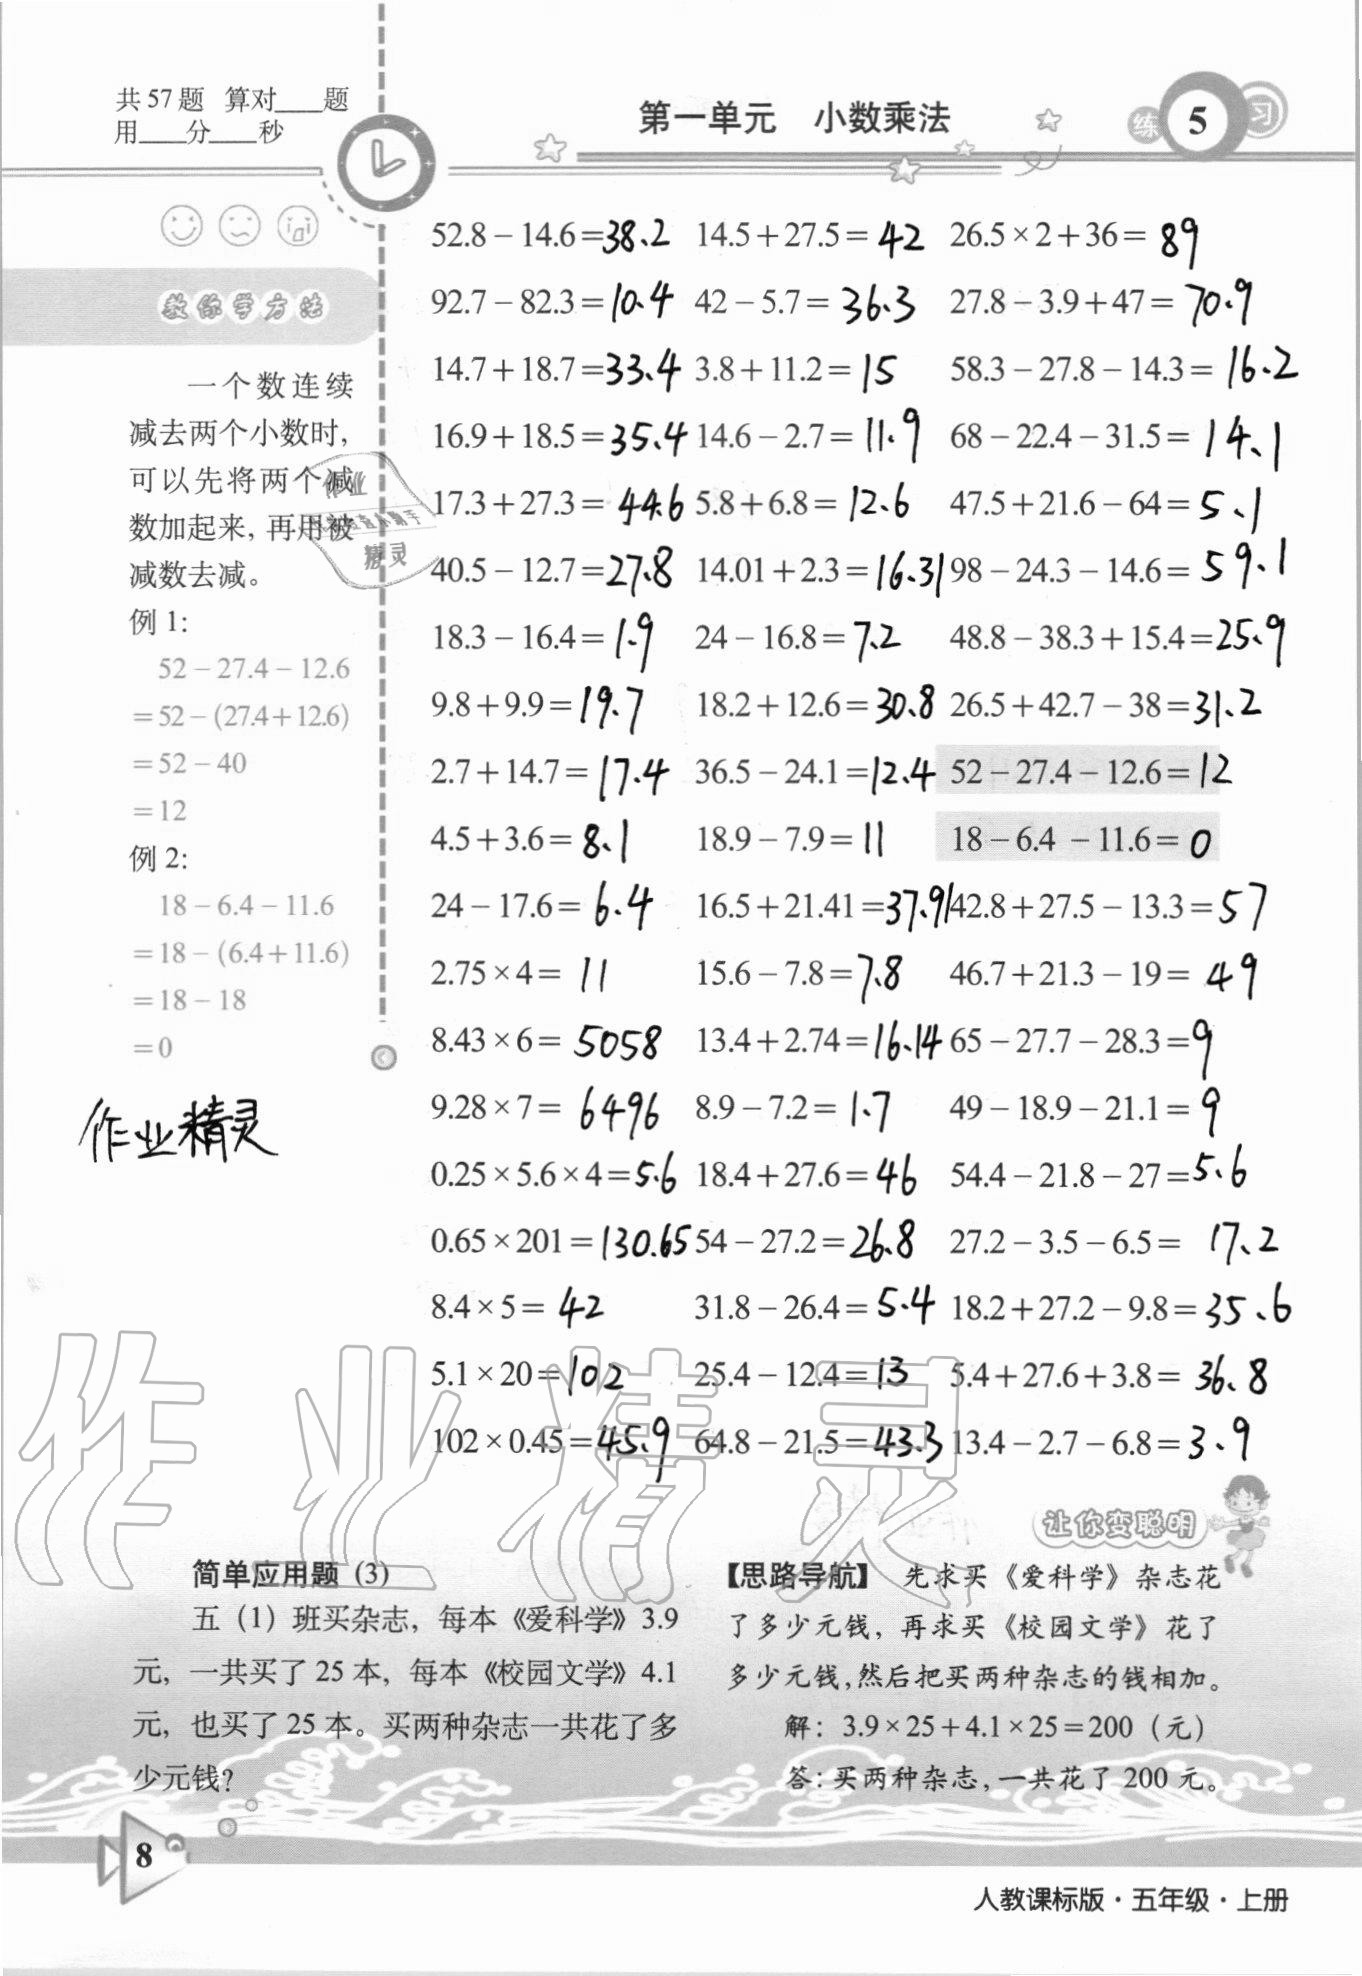 共57题 算对____题
用____分____秒
第一单元 小数乘法
练 5 习
教你学方法
一个数连续
减去两个小数时,
可以先将两个减
数加起来, 再用被
减数去减。
例 1:
52－27.4－12.6
＝52－(27.4＋12.6)
＝52－40
＝12
例 2:
18－6.4－11.6
＝18－(6.4＋11.6)
＝18－18
＝0
作业精灵
52.8－14.6＝38.2 14.5＋27.5＝42 26.5×2＋36＝89
92.7－82.3＝10.4 42－5.7＝36.3 27.8－3.9＋47＝70.9
14.7＋18.7＝33.4 3.8＋11.2＝15 58.3－27.8－14.3＝16.2
16.9＋18.5＝35.4 14.6－2.7＝11.9 68－22.4－31.5＝14.1
17.3＋27.3＝44.6 5.8＋6.8＝12.6 47.5＋21.6－64＝5.1
40.5－12.7＝27.8 14.01＋2.3＝16.31 98－24.3－14.6＝59.1
18.3－16.4＝1.9 24－16.8＝7.2 48.8－38.3＋15.4＝25.9
9.8＋9.9＝19.7 18.2＋12.6＝30.8 26.5＋42.7－38＝31.2
2.7＋14.7＝17.4 36.5－24.1＝12.4 52－27.4－12.6＝12
4.5＋3.6＝8.1 18.9－7.9＝11 18－6.4－11.6＝0
24－17.6＝6.4 16.5＋21.41＝37.91 42.8＋27.5－13.3＝57
2.75×4＝11 15.6－7.8＝7.8 46.7＋21.3－19＝49
8.43×6＝5058 13.4＋2.74＝16.14 65－27.7－28.3＝9
9.28×7＝6496 8.9－7.2＝1.7 49－18.9－21.1＝9
0.25×5.6×4＝5.6 18.4＋27.6＝46 54.4－21.8－27＝5.6
0.65×201＝130.65 54－27.2＝26.8 27.2－3.5－6.5＝17.2
8.4×5＝42 31.8－26.4＝5.4 18.2＋27.2－9.8＝35.6
5.1×20＝102 25.4－12.4＝13 5.4＋27.6＋3.8＝36.8
102×0.45＝45.9 64.8－21.5＝43.3 13.4－2.7－6.8＝3.9
作业精灵
让你变聪明
简单应用题 (3)
五（1）班买杂志, 每本《爱科学》3.9
元, 一共买了 25 本, 每本《校园文学》4.1
元, 也买了 25 本。买两种杂志一共花了多
少元钱?
【思路导航】 先求买《爱科学》杂志花
了多少元钱, 再求买《校园文学》花了
多少元钱,然后把买两种杂志的钱相加。
解: 3.9×25＋4.1×25＝200（元）
答: 买两种杂志, 一共花了 200 元。
8
人教课标版·五年级·上册